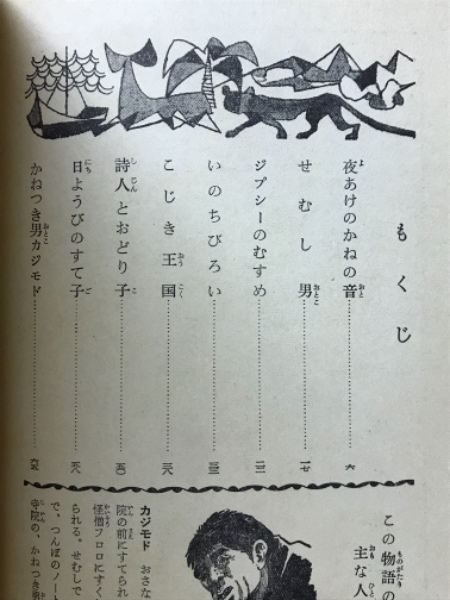 もくじ
夜あけのかねの音……六
せむし男……一七
ジプシーのむすめ……二二
いのちびろい……三三
こじき王国……三八
詩人とおどり子……五〇
日ようびのすて子……五八
かねつき男カジモド……六五
この物語の
主な人
カジモド　おさな
院の前にすてられ
怪僧フロロにすく
られる。せむしで
で、つんぼのノート
寺院の、かねつき男